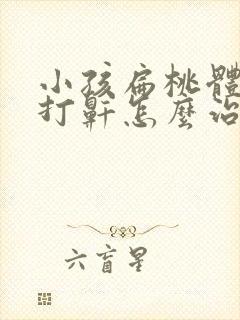 小孩扁桃體
打鼾怎麼治
六盲星